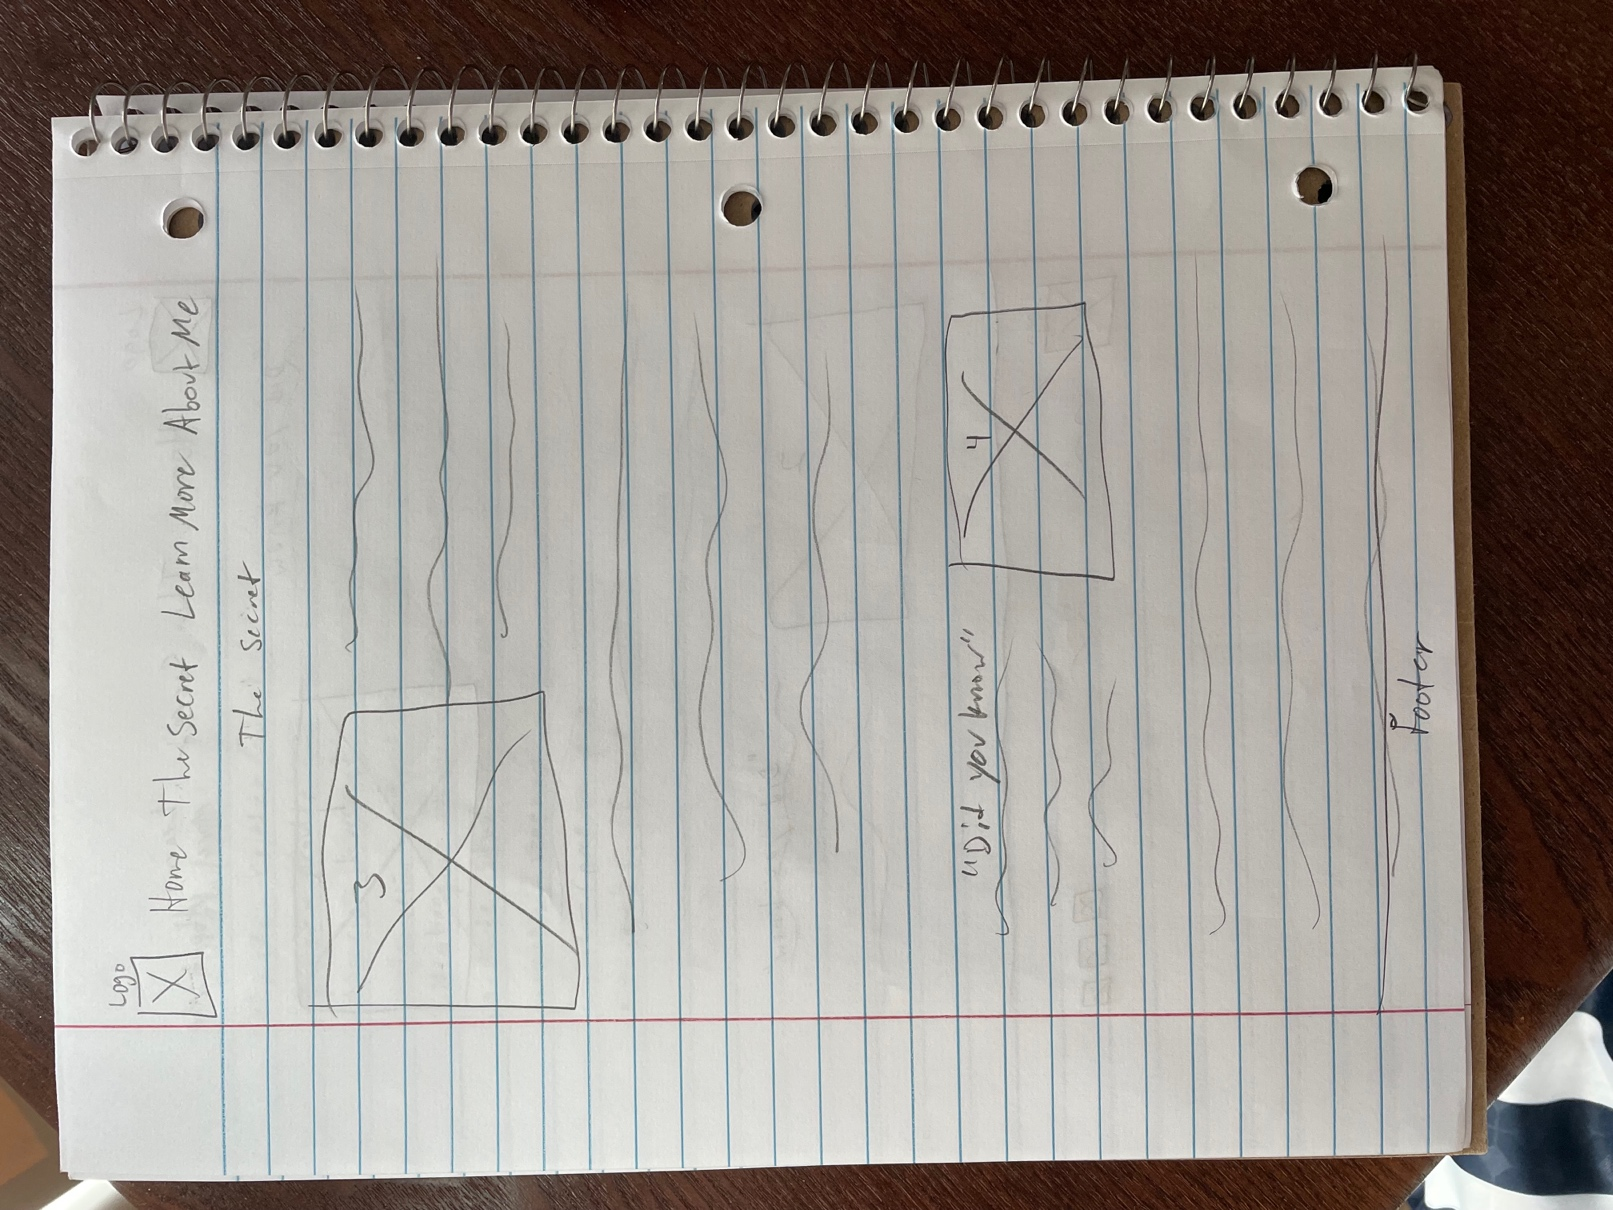 Logo
Home The Secret Learn More About Me
The Secret
3
"Did you know"
4
Footer